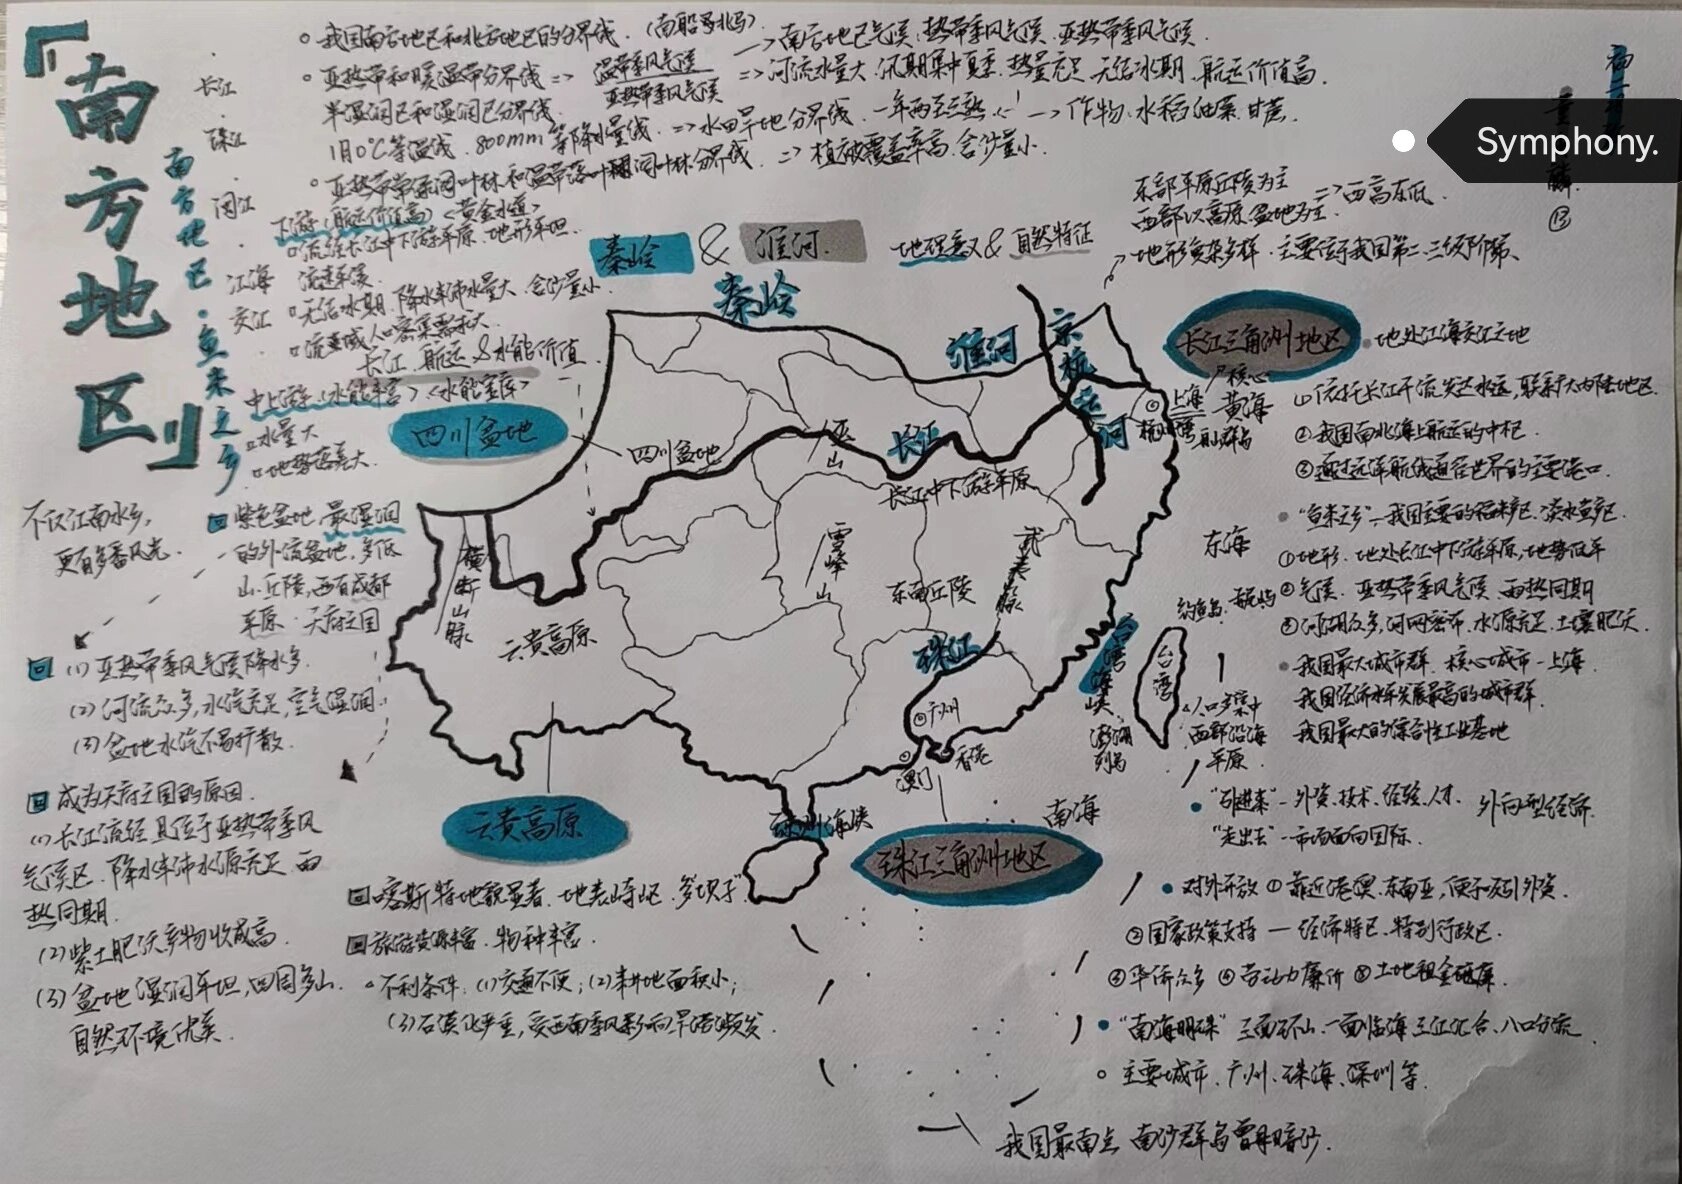 『南方地区』
南方地区·鱼米之乡
长江
珠江
闽江
不仅江南水乡,
更有多番风光.
我国南方地区和北方地区的分界线.(南船北马)
→南方地区气候:热带季风气候.亚热带季风气候.
亚热带和暖温带分界线 ⇒ 温带季风气候
亚热带季风气候
⇒河流水量大.汛期集中夏季.热量充足.无结冰期.航运价值高.
半湿润区和湿润区分界线.
1月0℃等温线.800mm等降水量线. ⇒水田旱地分界线.一年两至三熟 → 作物:水稻.油菜.甘蔗.
亚热带常绿阔叶林和温带落叶阔叶林分界线. ⇒植被覆盖率高.含沙量小.
下游(航运价值高)<黄金水道>
流经长江中下游平原.地形平坦.
流速平缓.
无结冰期.降水丰沛水量大.含沙量小.
流域人口密集需求大.
长江.航运&水能价值
中上游(水能丰富)<水能宝库>
水量大
地势落差大.
秦岭 & 淮河. 地理意义 & 自然特征
东部平原丘陵为主
西部以高原.盆地为主. ⇒西高东低.
地形复杂多样.主要位于我国第二、三级阶梯、
秦岭
淮河
京杭运河
四川盆地
四川盆地
巫山
长江
长江中下游平原
横断山脉
云贵高原
雪峰山
东南丘陵
武夷山脉
珠江
广州
香港
澳门
上海
杭州湾
黄海
东海
钓鱼岛
台湾海峡
台湾
澎湖列岛
人口多集中
西部沿海
平原.
南海
琼州海峡
紫色盆地,最湿润
的外流盆地,多低
山.丘陵,西有成都
平原.天府之国
(1)亚热带季风气候降水多.
(2)河流众多,水汽充足,空气湿润.
(3)盆地水汽不易扩散.
成为天府之国的原因.
(1)长江流经且位于亚热带季风
气候区.降水丰沛水源充足.雨
热同期.
(2)紫土肥沃农物收成高.
(3)盆地湿润平坦,四周多山.
自然环境优美.
云贵高原
喀斯特地貌显著.地表崎岖.多“坝子”
旅游资源丰富.物种丰富.
不利条件:(1)交通不便;(2)耕地面积小;
(3)石漠化严重,受西南季风影响旱涝频发.
长江三角洲地区 地处江海交汇之地
①依托长江干流发达水运,联系广大内陆地区.
②我国南北海上航运的中枢.
③通过远洋航线通往世界的主要港口.
“鱼米之乡”—我国主要的稻米产区.淡水鱼产区.
①地形.地处长江中下游平原,地势低平
②气候.亚热带季风气候.雨热同期
③河湖众多,河网密布.水源充足.土壤肥沃.
我国最大城市群.核心城市—上海.
我国经济水平发展最高的城市群.
我国最大的综合性工业基地
珠江三角洲地区
“引进来”—外资、技术、经验、人才. 外向型经济.
“走出去”—市场面向国际.
对外开放 ①靠近港澳.东南亚,便于吸引外资.
②国家政策支持—经济特区、特别行政区.
③华侨众多 ④劳动力廉价 ⑤土地租金低廉.
“南海明珠” 三面环山.一面临海.三江汇合.八口分流.
主要城市.广州、珠海、深圳等.
我国最南点 南沙群岛曾母暗沙.
⑬
Symphony.